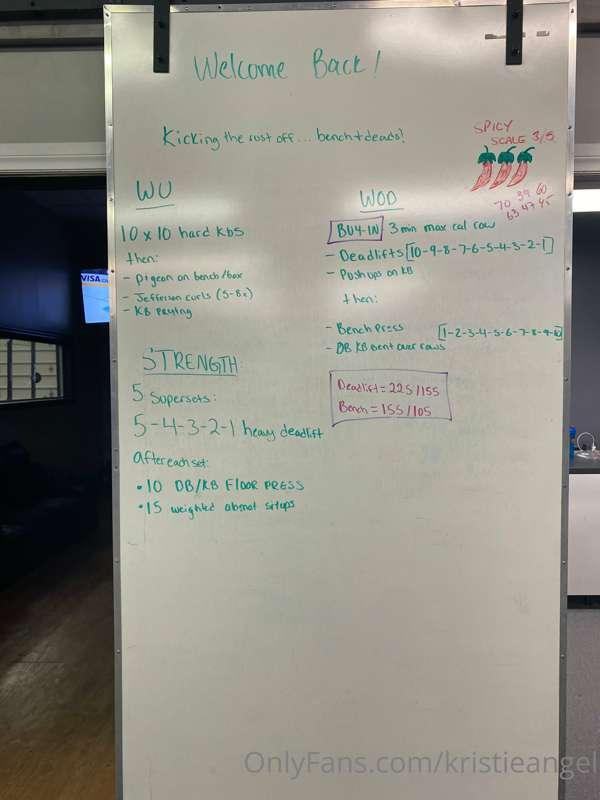 Welcome Back!
Kicking the rust off... bench + deads!
SPICY
SCALE 3/5
70 39 60
63 47 45
WU
10 x 10 hard KBS
then:
- pigeon on bench/box
- Jefferson curls (5-8x)
- KB
STRENGTH
5 supersets:
5-4-3-2-1 heavy deadlift
after each set:
• 10 DB/KB FLOOR PRESS
• 15 weighted abmat situps
WOD
BUY-IN 3 min max cal row
- Deadlifts [10-9-8-7-6-5-4-3-2-1]
- Push ups on KB
then:
- Bench press [1-2-3-4-5-6-7-8-9-10]
- DB KB bent over rows
Deadlift = 225/155
Bench = 155/105
VISA
OnlyFans.com/kristieangel